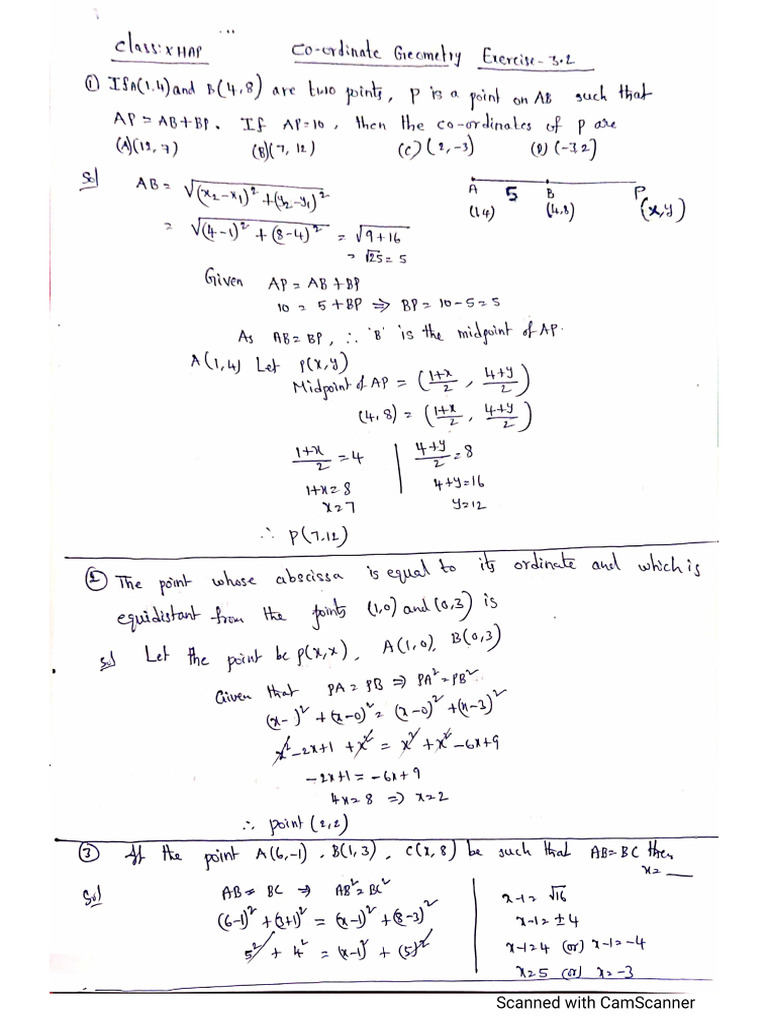 Class: X HAP Co-ordinate Geometry Exercise-3.2
① If A(1,4) and B(4,8) are two points, P is a point on AB such that
AP = AB+BP. If AP=10, then the co-ordinates of P are
(A)(12,7) (B)(7,12) (C)(2,-3) (D)(-3 2]
Sol AB = √(x₂-x₁)² + (y₂-y₁)²
A 5 B P
(1 4) (4,8) (x,y)
= √(4-1)² + (8-4)² = √9+16
= √25 = 5
Given AP = AB + BP
10 = 5 + BP ⇒ BP = 10-5 = 5
As AB = BP, ∴ 'B' is the midpoint of AP.
A(1,4) Let P(x,y)
Midpoint of AP = (1+x/2, 4+y/2)
(4,8) = (1+x/2, 4+y/2)
1+x/2 = 4 | 4+y/2 = 8
1+x=8 4+y=16
x=7 y=12
∴ P(7,12)
② The point whose abscissa is equal to its ordinate and which is
equidistant from the points (1,0) and (0,3) is
Sol Let the point be P(x,x), A(1,0), B(0,3)
Given that PA = PB ⇒ PA² = PB²
(x- )² + (x-0)² = (x-0)² + (x-3)²
x² -2x+1 + x² = x² + x² -6x+9
-2x+1 = -6x+9
4x=8 ⇒ x=2
∴ point (2,2)
③ If the point A(6,-1), B(1,3), C(x,8) be such that AB=BC then
x= ___
Sol AB = BC ⇒ AB² = BC²
(6-1)² + (3+1)² = (x-1)² + (8-3)²
5² + 4² = (x-1)² + (5)²
x-1 = √16
x-1 = ±4
x-1=4 (or) x-1=-4
x=5 (or) x=-3
Scanned with CamScanner